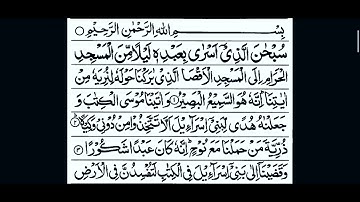 بِسْمِ اللّٰهِ الرَّحْمٰنِ الرَّحِيْمِ
سُبْحٰنَ الَّذِيْٓ اَسْرٰى بِعَبْدِهٖ لَيْلًا مِّنَ الْمَسْجِدِ
الْحَرَامِ اِلَى الْمَسْجِدِ الْاَقْصَا الَّذِيْ بٰرَكْنَا حَوْلَهٗ لِنُرِيَهٗ مِنْ
اٰيٰتِنَا ؕ اِنَّهٗ هُوَ السَّمِيْعُ الْبَصِيْرُ ۝۱ وَ اٰتَيْنَا مُوْسَى الْكِتٰبَ وَ
جَعَلْنٰهُ هُدًى لِّبَنِيْٓ اِسْرَآءِيْلَ اَلَّا تَتَّخِذُوْا مِنْ دُوْنِيْ وَكِيْلًا ۝۲
ذُرِّيَّةَ مَنْ حَمَلْنَا مَعَ نُوْحٍ ؕ اِنَّهٗ كَانَ عَبْدًا شَكُوْرًا ۝۳
وَ قَضَيْنَآ اِلٰى بَنِيْٓ اِسْرَآءِيْلَ فِي الْكِتٰبِ لَتُفْسِدُنَّ فِي الْاَرْضِ